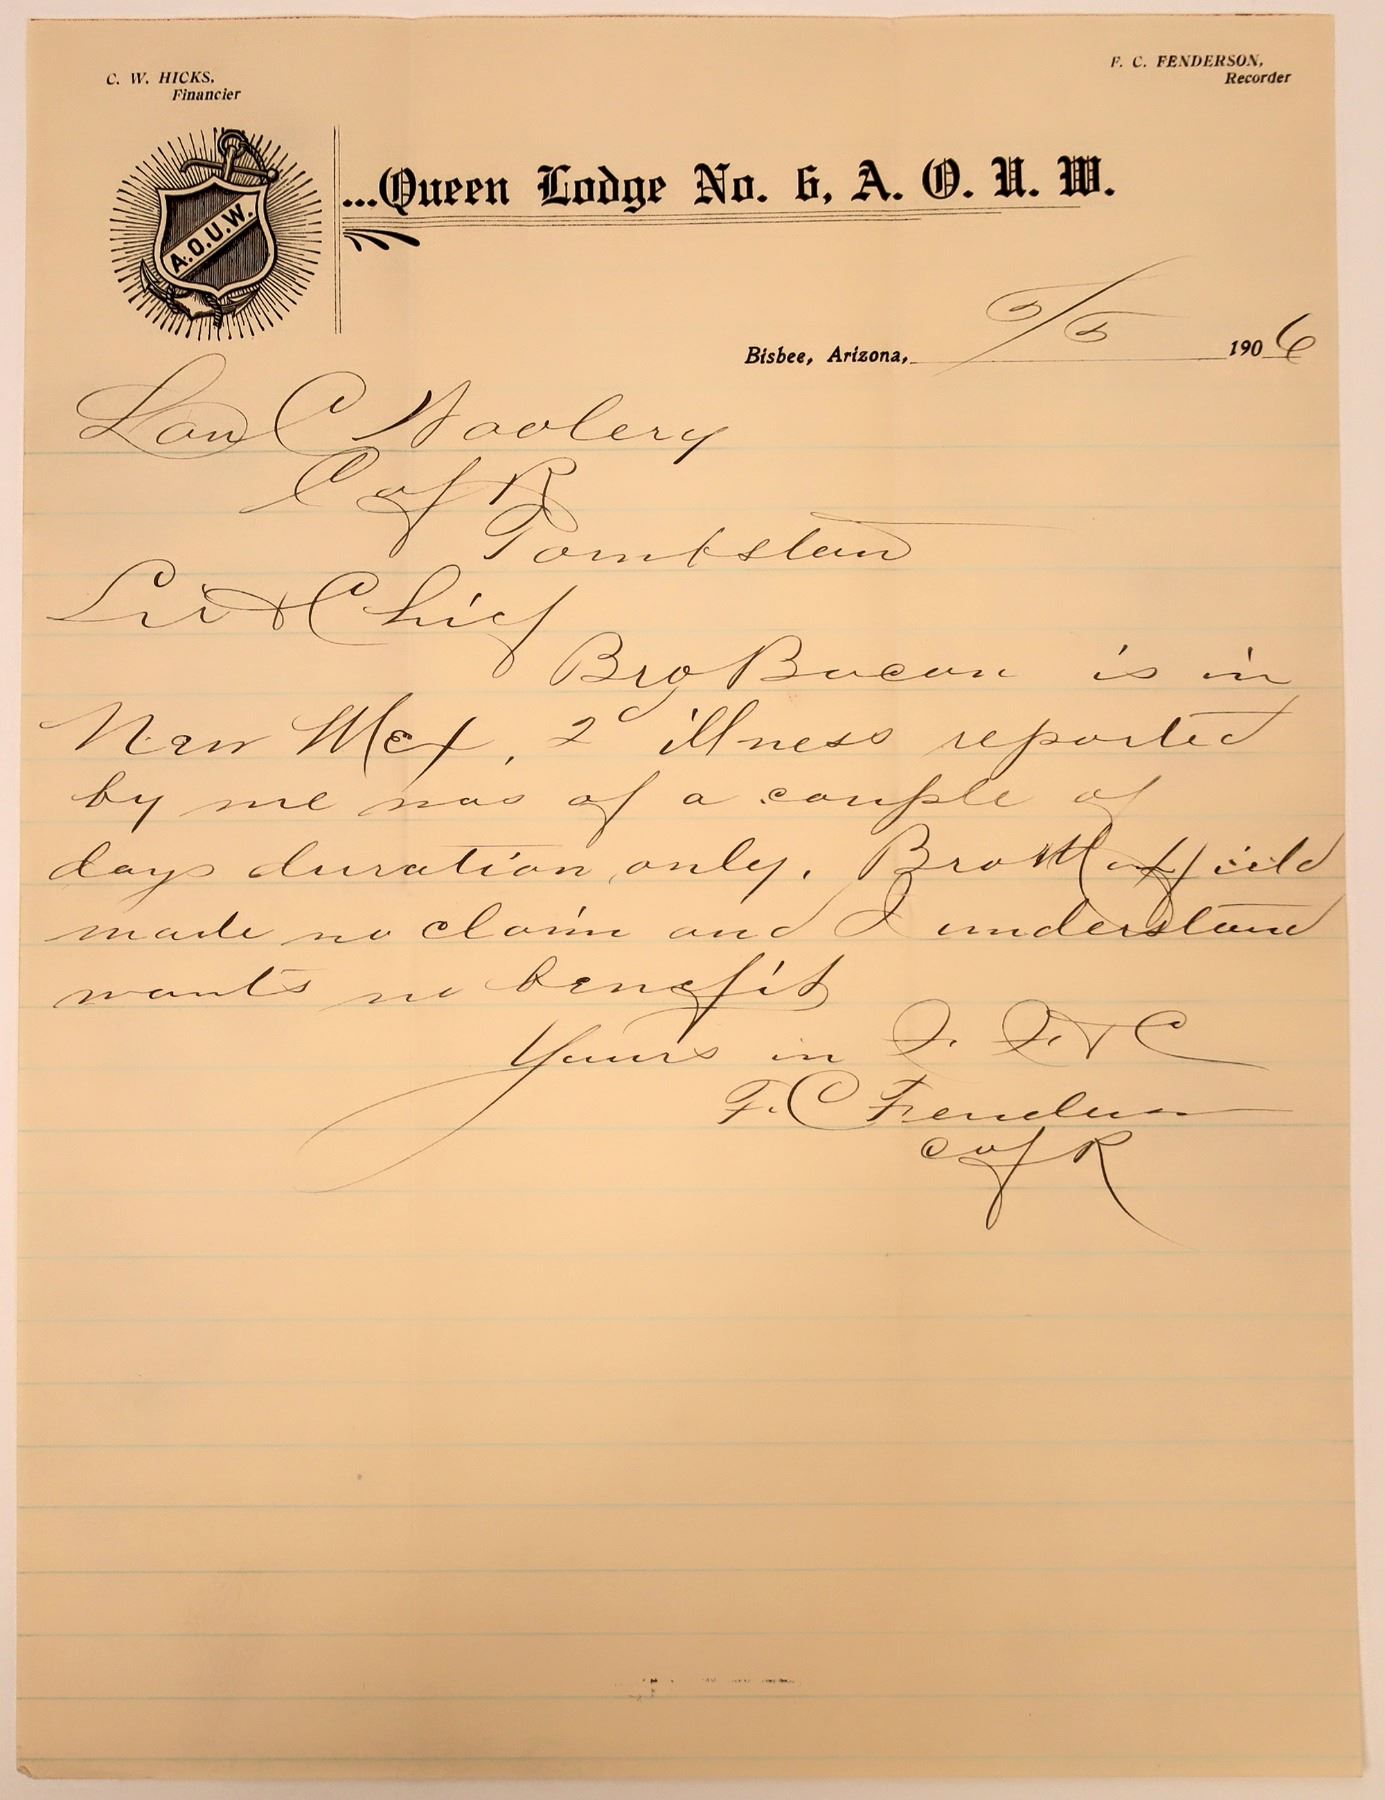 C. W. HICKS,
Financier
F. C. FENDERSON,
Recorder
A.O.U.W.
...Queen Lodge No. 6, A. O. U. W.
Bisbee, Arizona, 5/5 1906
Lon C Woolery
C of R
Tombston
Sir & Chief
Bro Bacon is in
New Mex, 2d illness reported
by me was of a couple of
days duration only. Bro
made no claim and I understand
wants no benefit
Yours in F. F. & C
F. C Fenderson
C of R